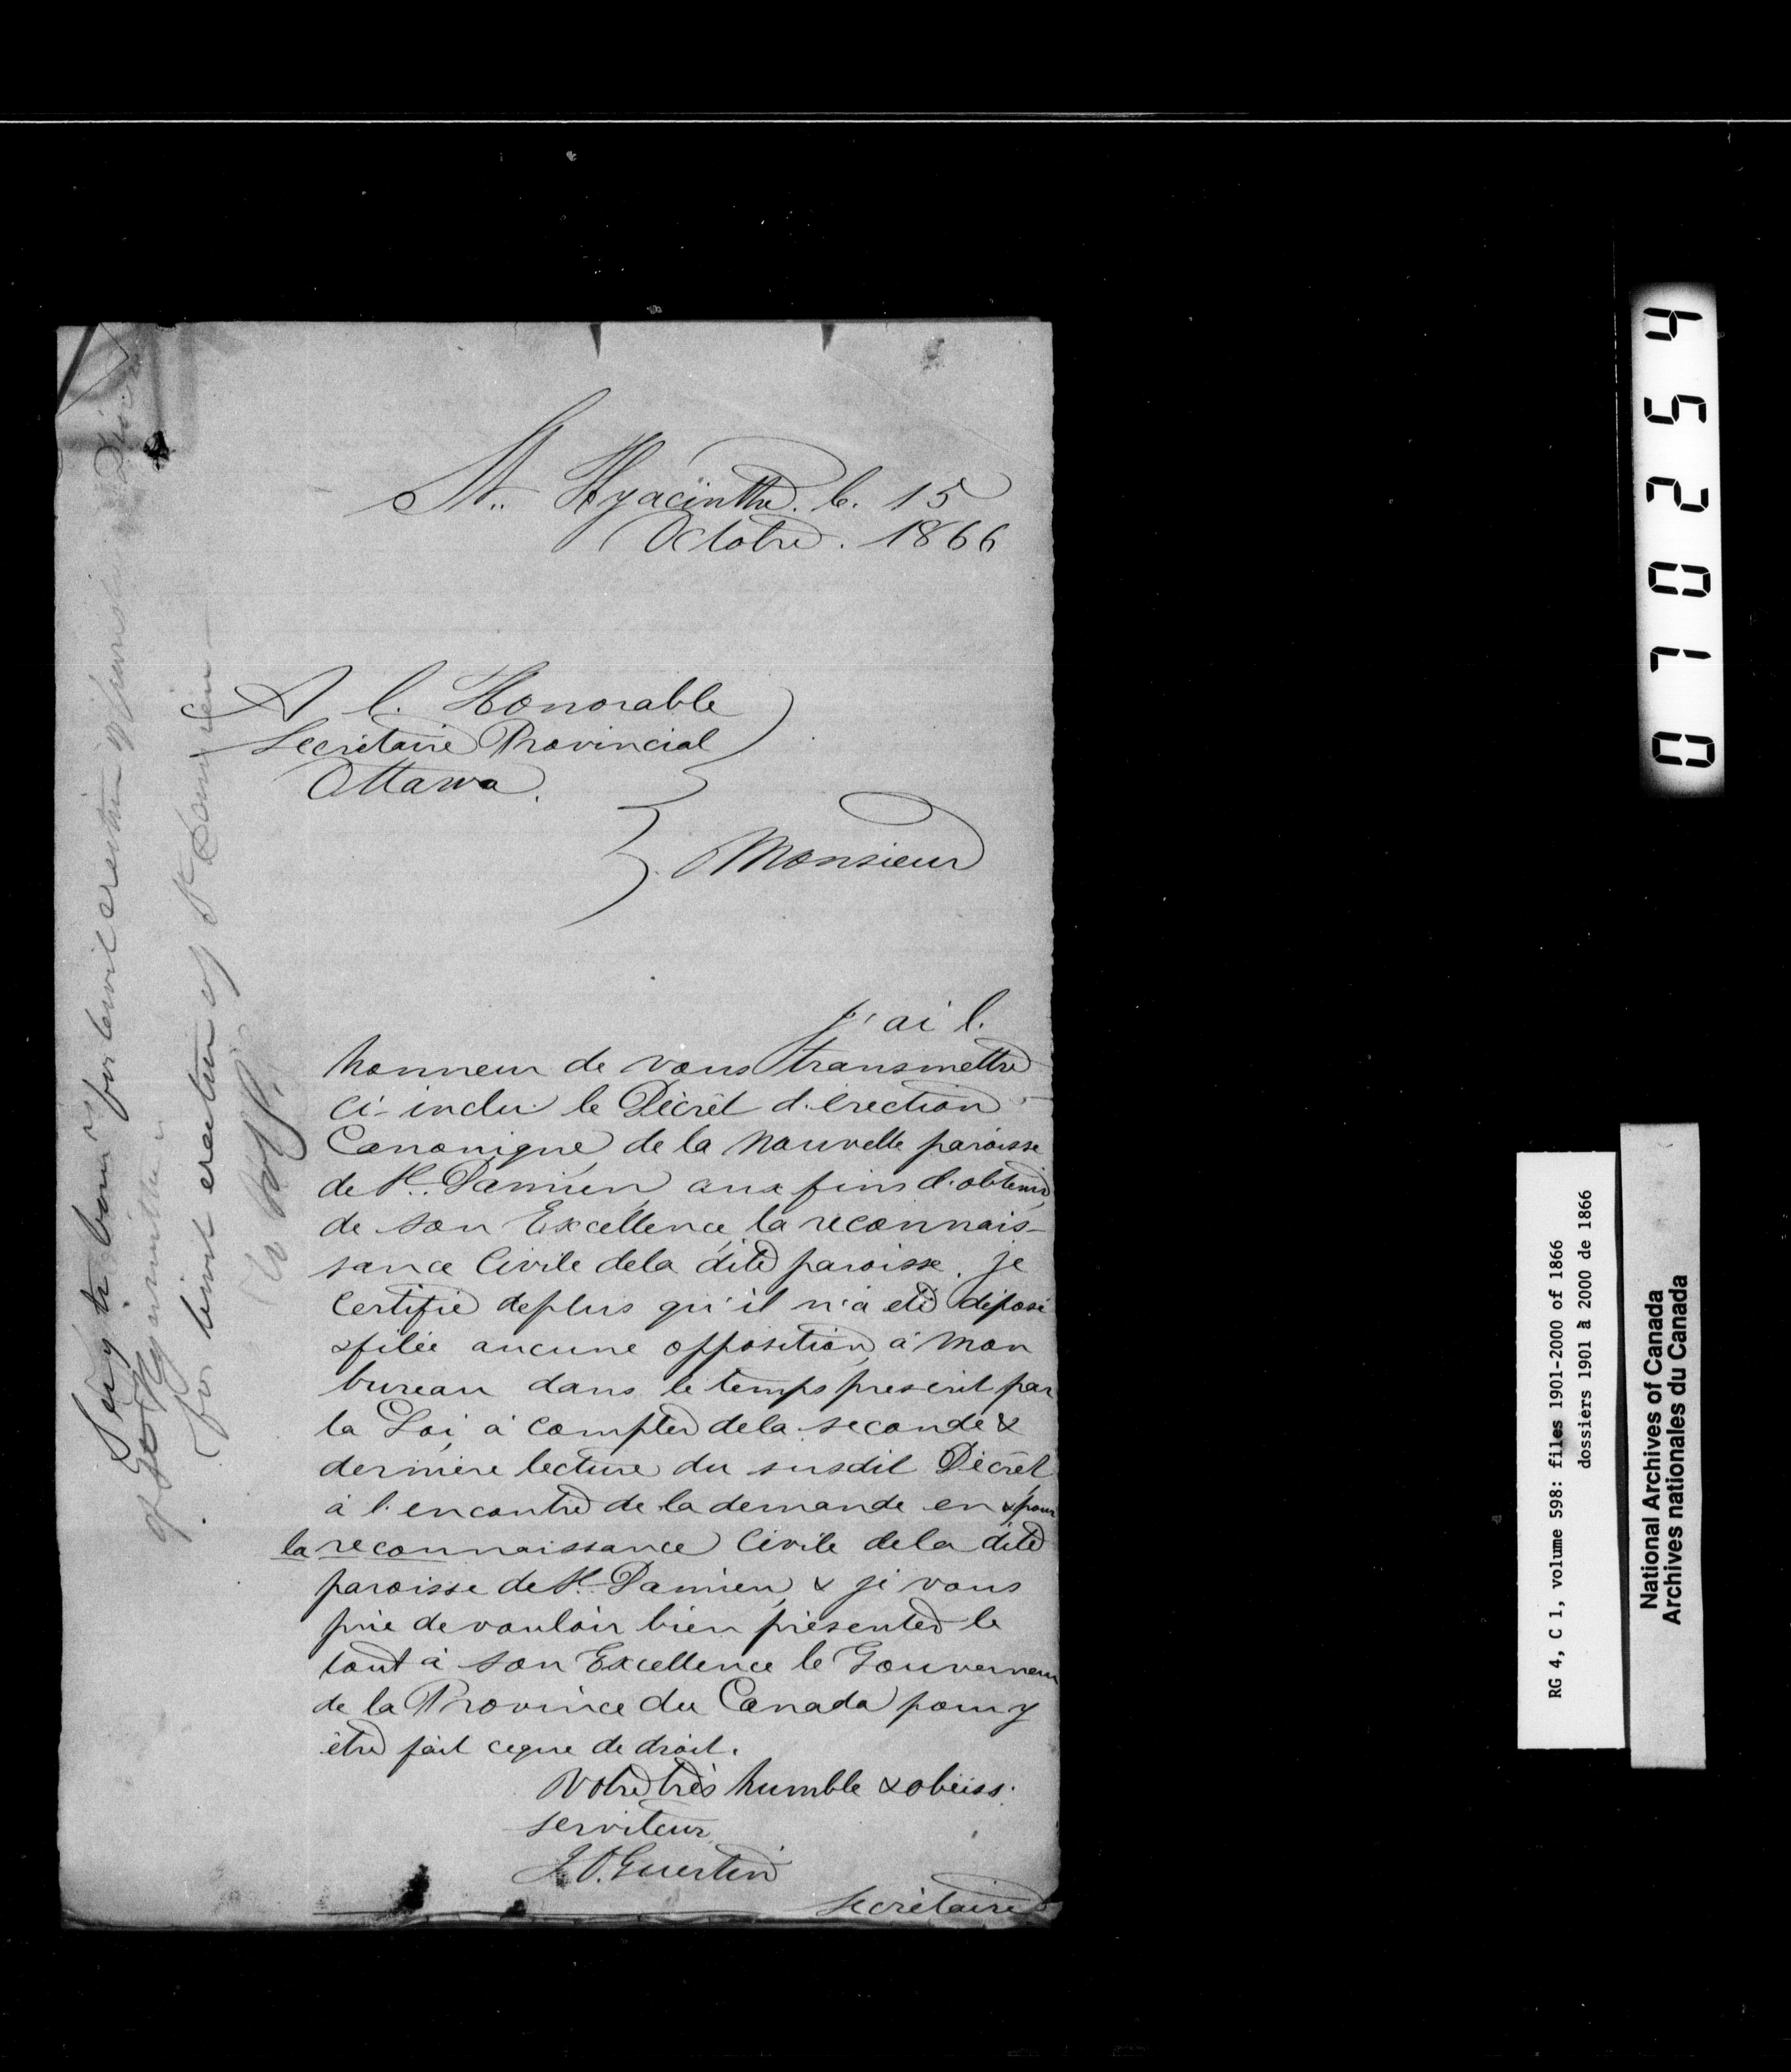 St. Hyacinthe. le. 15
Octobre. 1866
A l. Honorable
Secrétaire Provincial
Ottawa.
Monsieur
j'ai l.
honneur de vous transmettre
ci-inclu le Décrêt d.érection
Canonique de la nouvelle paroisse
de St. Damien aux fins d.obtenir
de son Excellence, la reconnais-
sance Civile dela dite paroisse. je
Certifie deplus qu'il n'a été déposé
& filée aucune opposition à mon
bureau dans le temps prescrit par
la Loi, à compter dela seconde &
dernière lecture du susdit Décrêt
à l.encontre de la demande en & pour
la reconnaissance Civile dela dite
paroisse de St. Damien, & je vous
prie de vouloir bien présenter le
tout à son Excellence le Gouverneur
de la Province du Canada pour y
être fait ceque de droit.
Votre très humble & obéiss.
serviteur
J.O. Guertin
Secrétaire
for civil erection
of St. Hyacinthe
for civil erection of St Damien
0710254
RG 4, C 1, volume 598: files 1901-2000 of 1866
dossiers 1901 à 2000 de 1866
National Archives of Canada
Archives nationales du Canada